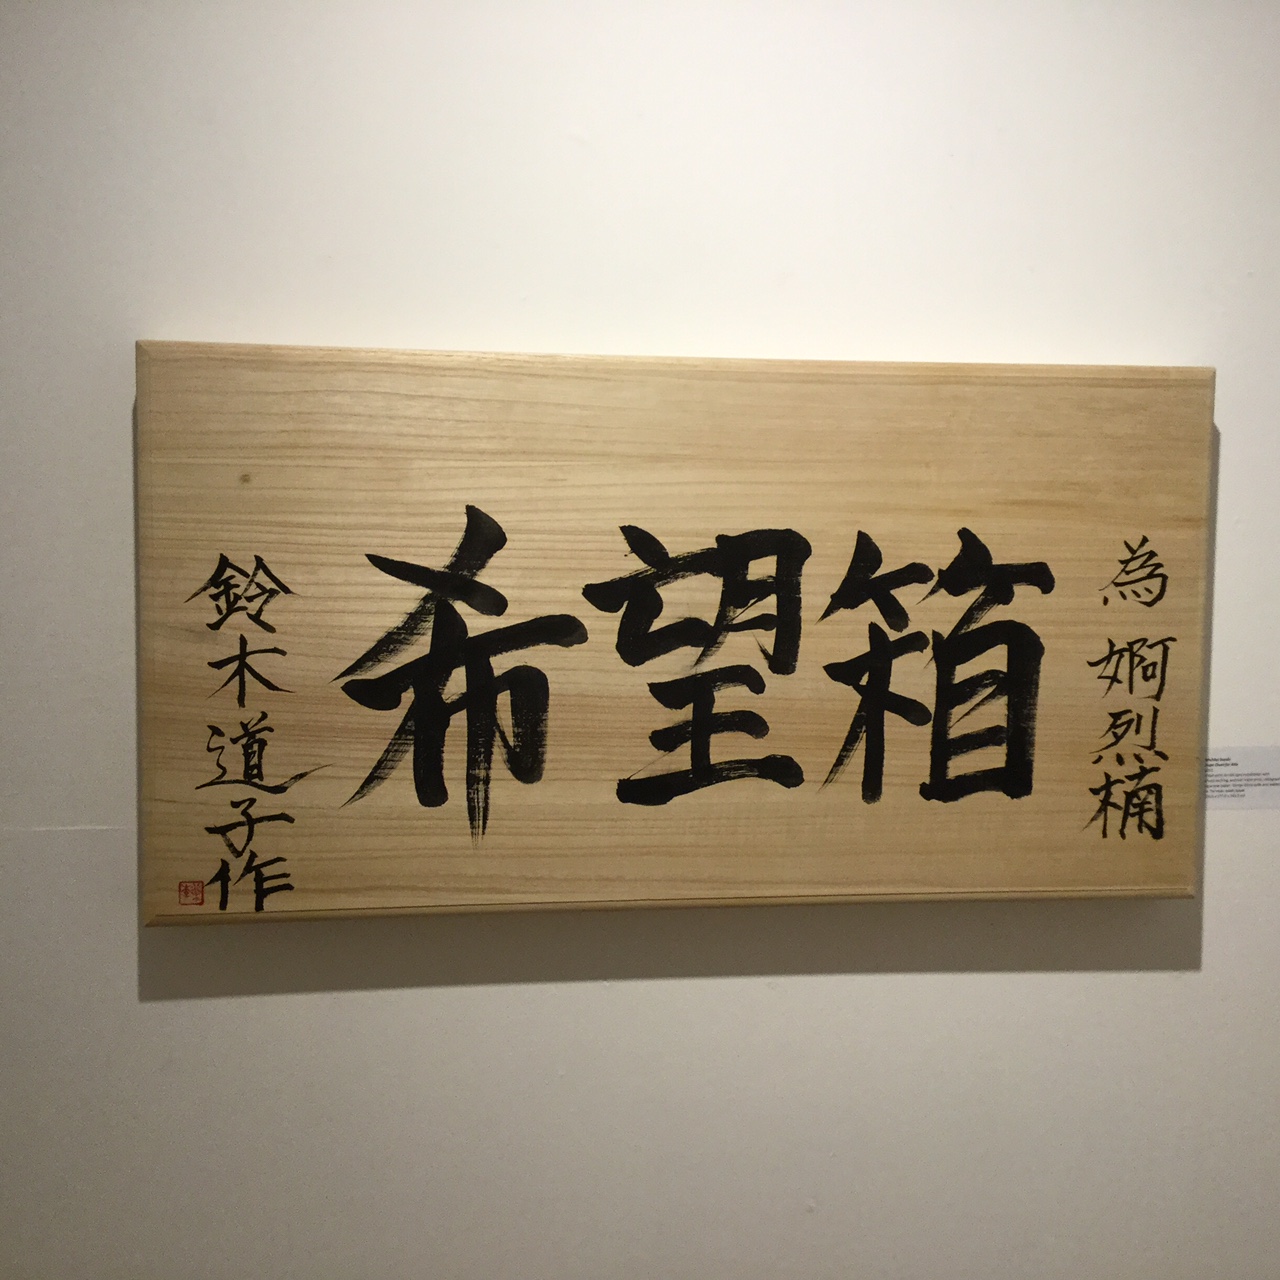 為 婀烈楠
希望箱
鈴木道子作